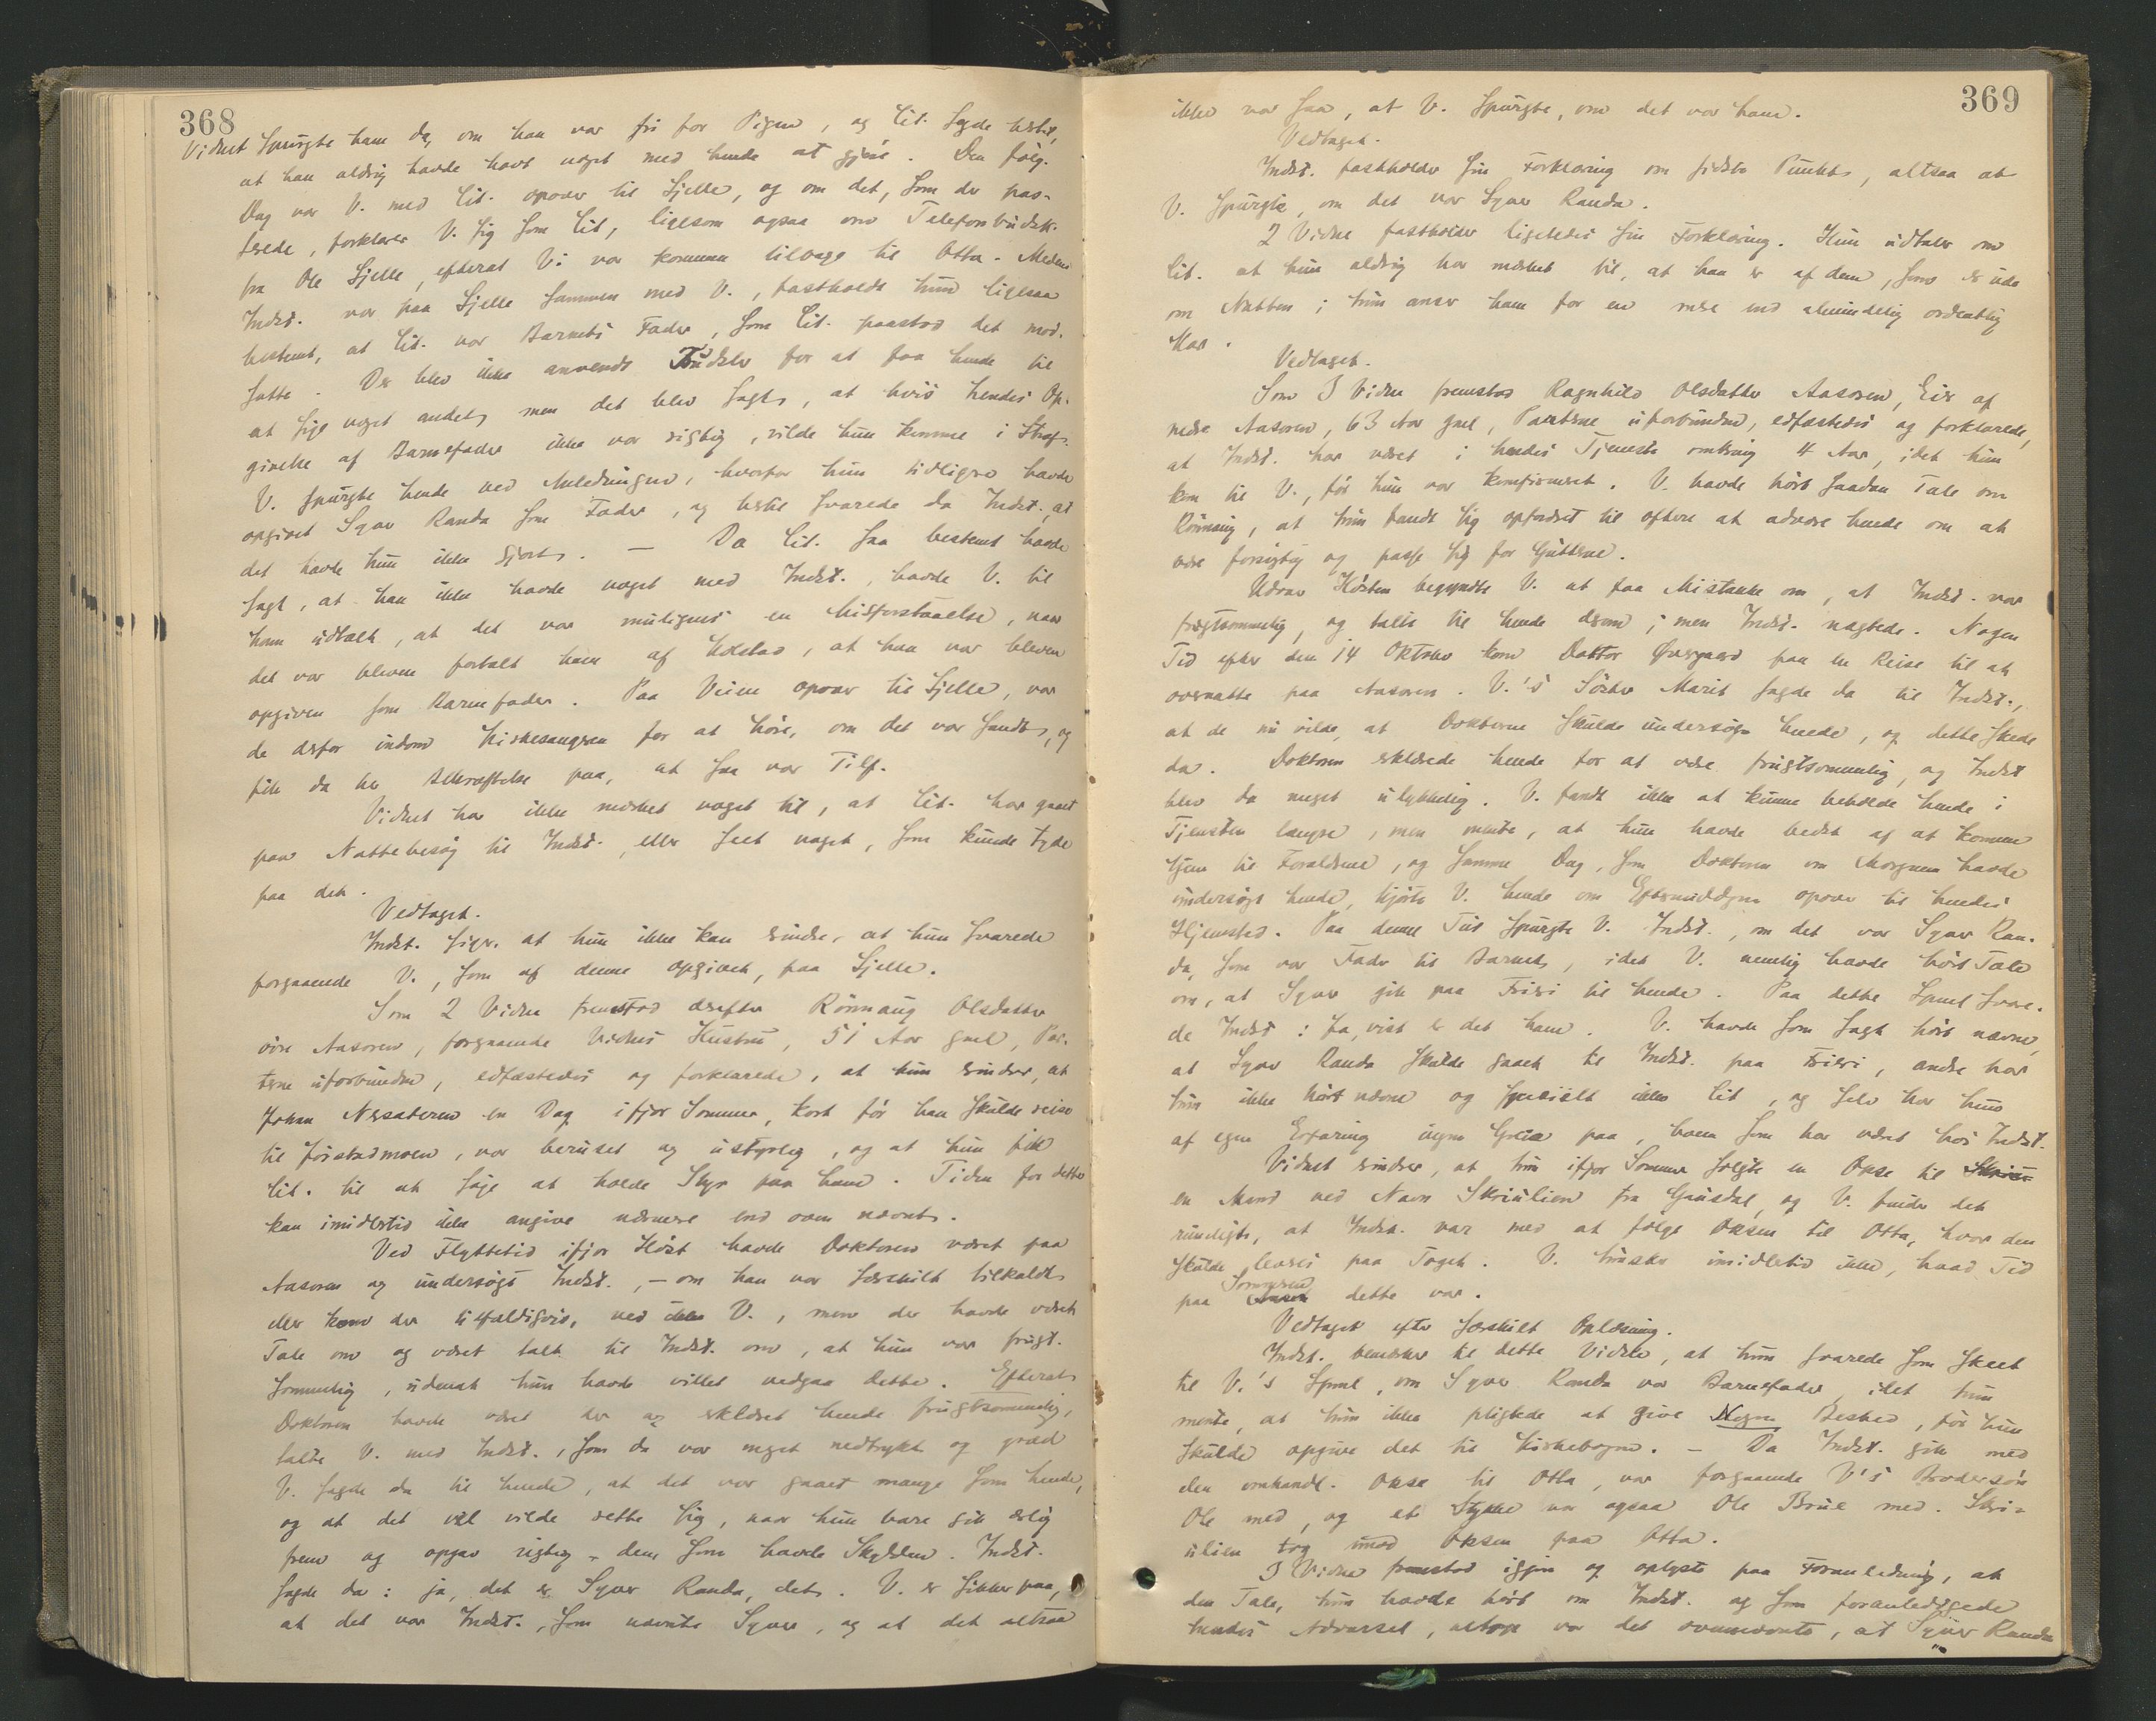 368
Vidnet spurgte ham da, om han var fri for Pigen, og Cit. sagde bestemt,
at han aldrig havde havt noget med hende at gjøre. Den følg.
Dag var V. med Cit. opover til Sjelle, og om det, som der pas-
serede, forklarer V. sig som Cit, ligesom ogsaa om Telefonbudsk.
fra Ole Sjelle, efterat V. var kommen tilbage til Otta. Medens
Indst. var paa Sjelle sammen med V., fastholdt hun ligesaa
bestemt, at Cit. var Barnets Fader, som Cit. paastod det mod-
satte. Der blev ikke anvendt Trudsler for at faa hende til
at sige noget andet, men det blev sagt, at hvis hendes Op-
givelse af Barnefader ikke var rigtig, vilde hun komme i Straf.
V. spurgte hende ved Anledningen, hvorfor hun tidligere havde
opgivet Syver Randa som Fader, og hertil svarede da Indst., at
det havde hun ikke gjort. — Da Cit. saa bestemt havde
sagt, at han ikke havde noget med Indst., havde V. til
ham udtalt, at det var muligens en Misforstaaelse, naar
det var bleven fortalt ham af Holstad, at han var bleven
opgiven som Barnefader. Paa Veien opover til Sjelle, var
de derfor indom Kirkesangeren for at høre, om det var sandt, og
fik da her Bekræftelse paa, at saa var Tilf.
Vidnet har ikke mærket noget til, at Cit. har gaaet
paa Nattebesøg til Indst., eller seet noget, som kunde tyde
paa det.
Vedtaget.
Indst. siger, at hun ikke kan erindre, at hun svarede
forgaaende V., som af denne opgivet, paa Sjelle.
Som 2 Vidne fremstod derefter Rønnaug Olsdatter
øvre Aasoren, forgaaende Vidnes Hustru, 51 Aar gml, Par-
terne uforbunden, edfæstedes og forklarede, at hun erindrer, at
Johan Nesæteren en Dag ifjor Sommer, kort før han skulde reise
til Jørstadmoen, var beruset og ustyrlig, og at hun fik
Cit. til at søge at holde Styr paa ham. Tiden for dette
kan imidlertid ikke angive nærmere end ovenn nævnt.
Ved Flyttetid ifjor Høst havde Doktoren været paa
Aasoren og undersøgt Indst., — om han var særskilt tilkaldt
eller kom der tilfældigvis, ved ikke V., men der havde været
Tale om og været talt til Indst. om, at hun var frugt-
sommelig, udenat hun havde villet vedgaa dette. Efterat
Doktoren havde været der og erklæret hende frugtsommelig,
talte V. med Indst., som da var meget nedtrykt og græd
V. sagde da til hende, at det var gaaet mange som hende,
og at det vel vilde rette sig, naar hun bare gik ærlig
frem og opgav rigtig dem, som havde Skylden. Indst.
sagde da: ja, det er Syver Randa, det. V. er sikker paa,
at det var Indst., som nævnte Syver, og at det altsaa
369
ikke var saa, at V. spurgte, om det var ham.
Vedtaget.
Indst. fastholder sin Forklaring om sidste Punkt, altsaa at
V. spurgte, om det var Syver Randa.
2 Vidne fastholder ligeledes sin Forklaring. Hun udtaler om
Cit. at hun aldrig har mærket til, at han er af dem, som er ude
om Natten; hun anser ham for en mere end almindelig ordentlig
Kar.
Vedtaget.
Som 3 Vidne fremstod Ragnhild Olsdatter Aasoren, Eier af
nedre Aasoren, 63 Aar gml, Parterne uforbunden, edfæstedes og forklarede,
at Indst. har været i hendes Tjeneste omkring 4 Aar, idet hun
kom til V., før hun var konfirmeret. V. havde hørt saadan Tale om
Rønnaug, at hun fandt sig opfordret til oftere at advare hende om at
være forsigtig og passe sig for Gutterne.
Udover Høsten begyndte V. at faa Mistanke om, at Indst. var
frugtsommelig, og talte til hende derom; men Indst. nægtede. Nogen
Tid efter den 14 Oktober kom Doktor Øvergaard paa en Reise til at
overnatte paa Aasoren. V.'s Søster Marit sagde da til Indst.,
at de nu vilde, at Doktoren skulde undersøge hende, og dette skede
da. Doktoren erklærede hende for at være frugtsommelig, og Indst
blev da meget ulykkelig. V. fandt ikke at kunne beholde hende i
Tjenesten længre, men mente, at hun havde bedst af at komme
hjem til Forældrene, og samme Dag, som Doktoren om Morgenen havde
undersøgt hende, kjørte V. hende om Eftermiddagen opover til hendes
Hjemsted. Paa denne Tur spurgte V. Indst., om det var Syver Ran-
da, som var Fader til Barnet, idet V. nemlig havde hørt Tale
om, at Syver gik paa Frieri til hende. Paa dette Spml svare-
de Indst: Ja, vist er det ham. V. havde som sagt hørt nævne,
at Syver Randa skulde gaaet til Indst. paa Frieri, andre har
hun ikke hørt nævne og specielt ikke Cit, og selv har hun
af egen Erfaring ingen Greie paa, hvem som har været hos Indst.
Vidnet erindrer, at hun ifjor Sommer solgte en Okse til
en Mand ved Navn Skriulien fra Gausdal, og V. finder det
rimeligt, at Indst. var med at følge Oksen til Otta, hvor den
skulde leveres paa Toget. V. husker imidlertid ikke, hvad Tid
paa Sommeren dette var.
Vedtaget efter særskilt Oplæsning.
Indst. bemerker til dette Vidne, at hun svarede som skeet
til V.'s Spml, om Syver Randa var Barnefader, idet hun
mente, at hun ikke pligtede at give Nogen Besked, før hun
skulde opgive det til Kirkebogen. — Da Indst. gik med
den omhandl. Okse til Otta, var forgaaende V's Brodersøn
Ole med, og et Stykke var ogsaa Ole Brue med. Skri-
ulien tog imod Oksen paa Otta.
3 Vidne fremstod igjen og oplyste paa Foranledning, at
den Tale, hun havde hørt om Indst. og som foranledigede
hendes Advarsel, netop var det ovennævnte, at Syver Randa